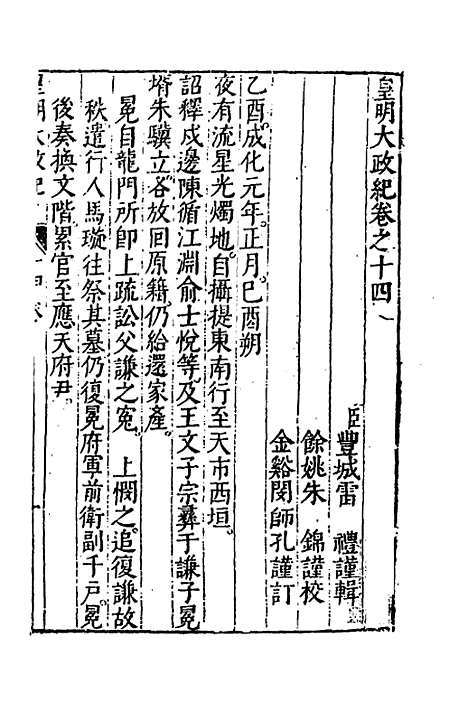 皇明大政紀卷之十四
臣豐城雷　禮謹輯
餘姚朱　錦謹校
金谿閔師孔謹訂
乙酉。成化元年。正月。己酉朔
夜有流星光燭地。自攝提東南行至天市西垣。
詔釋戍邊陳循江淵俞士悅等及王文子宗彝于謙子冕
壻朱驥立各放回原籍仍給還家產。
冕自龍門所即上疏訟父謙之寃。　上憫之。追復謙故
秩遣行人馬璇往祭其墓仍復冕府軍前衛副千戶。冕
後奏換文階累官至應天府尹。
皇明大政紀